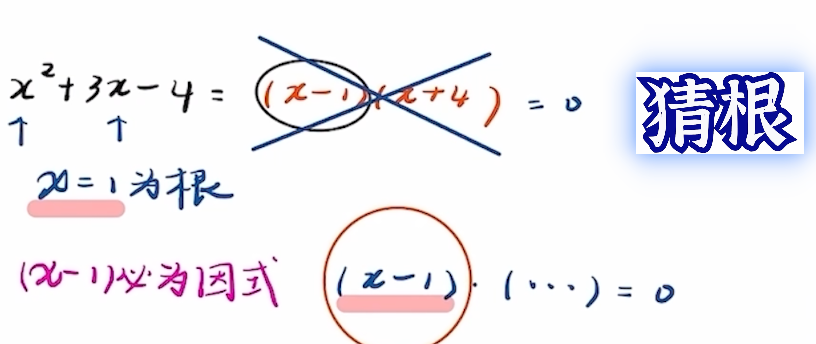 x²+3x-4= (x-1)(x+4) = 0
猜根
↑ ↑
x=1为根
(x-1)必为因式 (x-1)·(···)=0